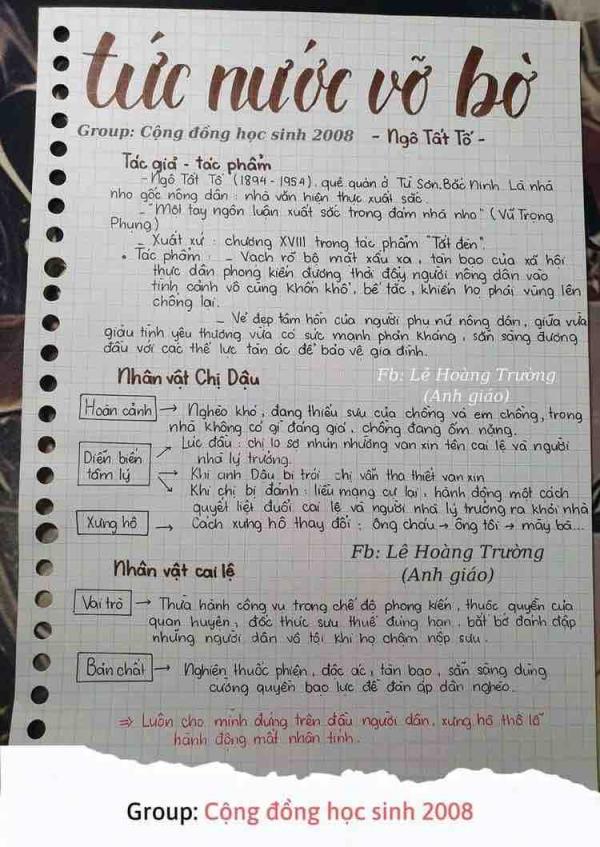 tức nước vỡ bờ
Group: Cộng đồng học sinh 2008 - Ngô Tất Tố -
Tác giả - tác phẩm
- Ngô Tất Tố (1894 - 1954). quê quán ở Từ Sơn, Bắc Ninh. Là nhà
nho gốc nông dân : nhà văn hiện thực xuất sắc.
- "Một tay ngôn luận xuất sắc trong đám nhà nho" (Vũ Trọng
Phụng)
- Xuất xứ : chương XVIII trong tác phẩm "Tắt đèn".
• Tác phẩm : - Vạch rõ bộ mặt xấu xa, tàn bạo của xã hội
thực dân phong kiến đương thời đẩy người nông dân vào
tình cảnh vô cùng khốn khổ, bế tắc, khiến họ phải vùng lên
chống lại.
- Vẻ đẹp tâm hồn của người phụ nữ nông dân, giữa vừa
giàu tình yêu thương vừa có sức mạnh phản kháng, sẵn sàng đương
đầu với các thế lực tàn ác để bảo vệ gia đình.
Nhân vật Chị Dậu
Fb: Lê Hoàng Trường
(Anh giáo)
Hoàn cảnh → Nghèo khó, đang thiếu sưu của chồng và em chồng, trong
nhà không có gì đáng giá, chồng đang ốm nặng.
Diễn biến tâm lý → Lúc đầu : chị lo sợ nhún nhường van xin tên cai lệ và người
nhà lý trưởng.
→ Khi anh Dậu bị trói chị vẫn tha thiết van xin
→ Khi chị bị đánh : liều mạng cự lại, hành động một cách
quyết liệt đuổi cai lệ và người nhà lý trưởng ra khỏi nhà
Xưng hô → Cách xưng hô thay đổi : Ông cháu → ông tôi → mày bà...
Fb: Lê Hoàng Trường
(Anh giáo)
Nhân vật cai lệ
Vai trò → Thừa hành công vụ trong chế độ phong kiến, thuộc quyền của
quan huyện, đốc thúc sưu thuế đúng hạn, bắt bớ đánh đập
những người dân vô tội khi họ chậm nộp sưu.
Bản chất → Nghiện thuốc phiện, độc ác, tàn bạo, sẵn sàng dùng
cường quyền bạo lực để đàn áp dân nghèo.
⇒ Luôn cho mình đứng trên đầu người dân, xưng hô thô lỗ
hành động mất nhân tính.
Group: Cộng đồng học sinh 2008